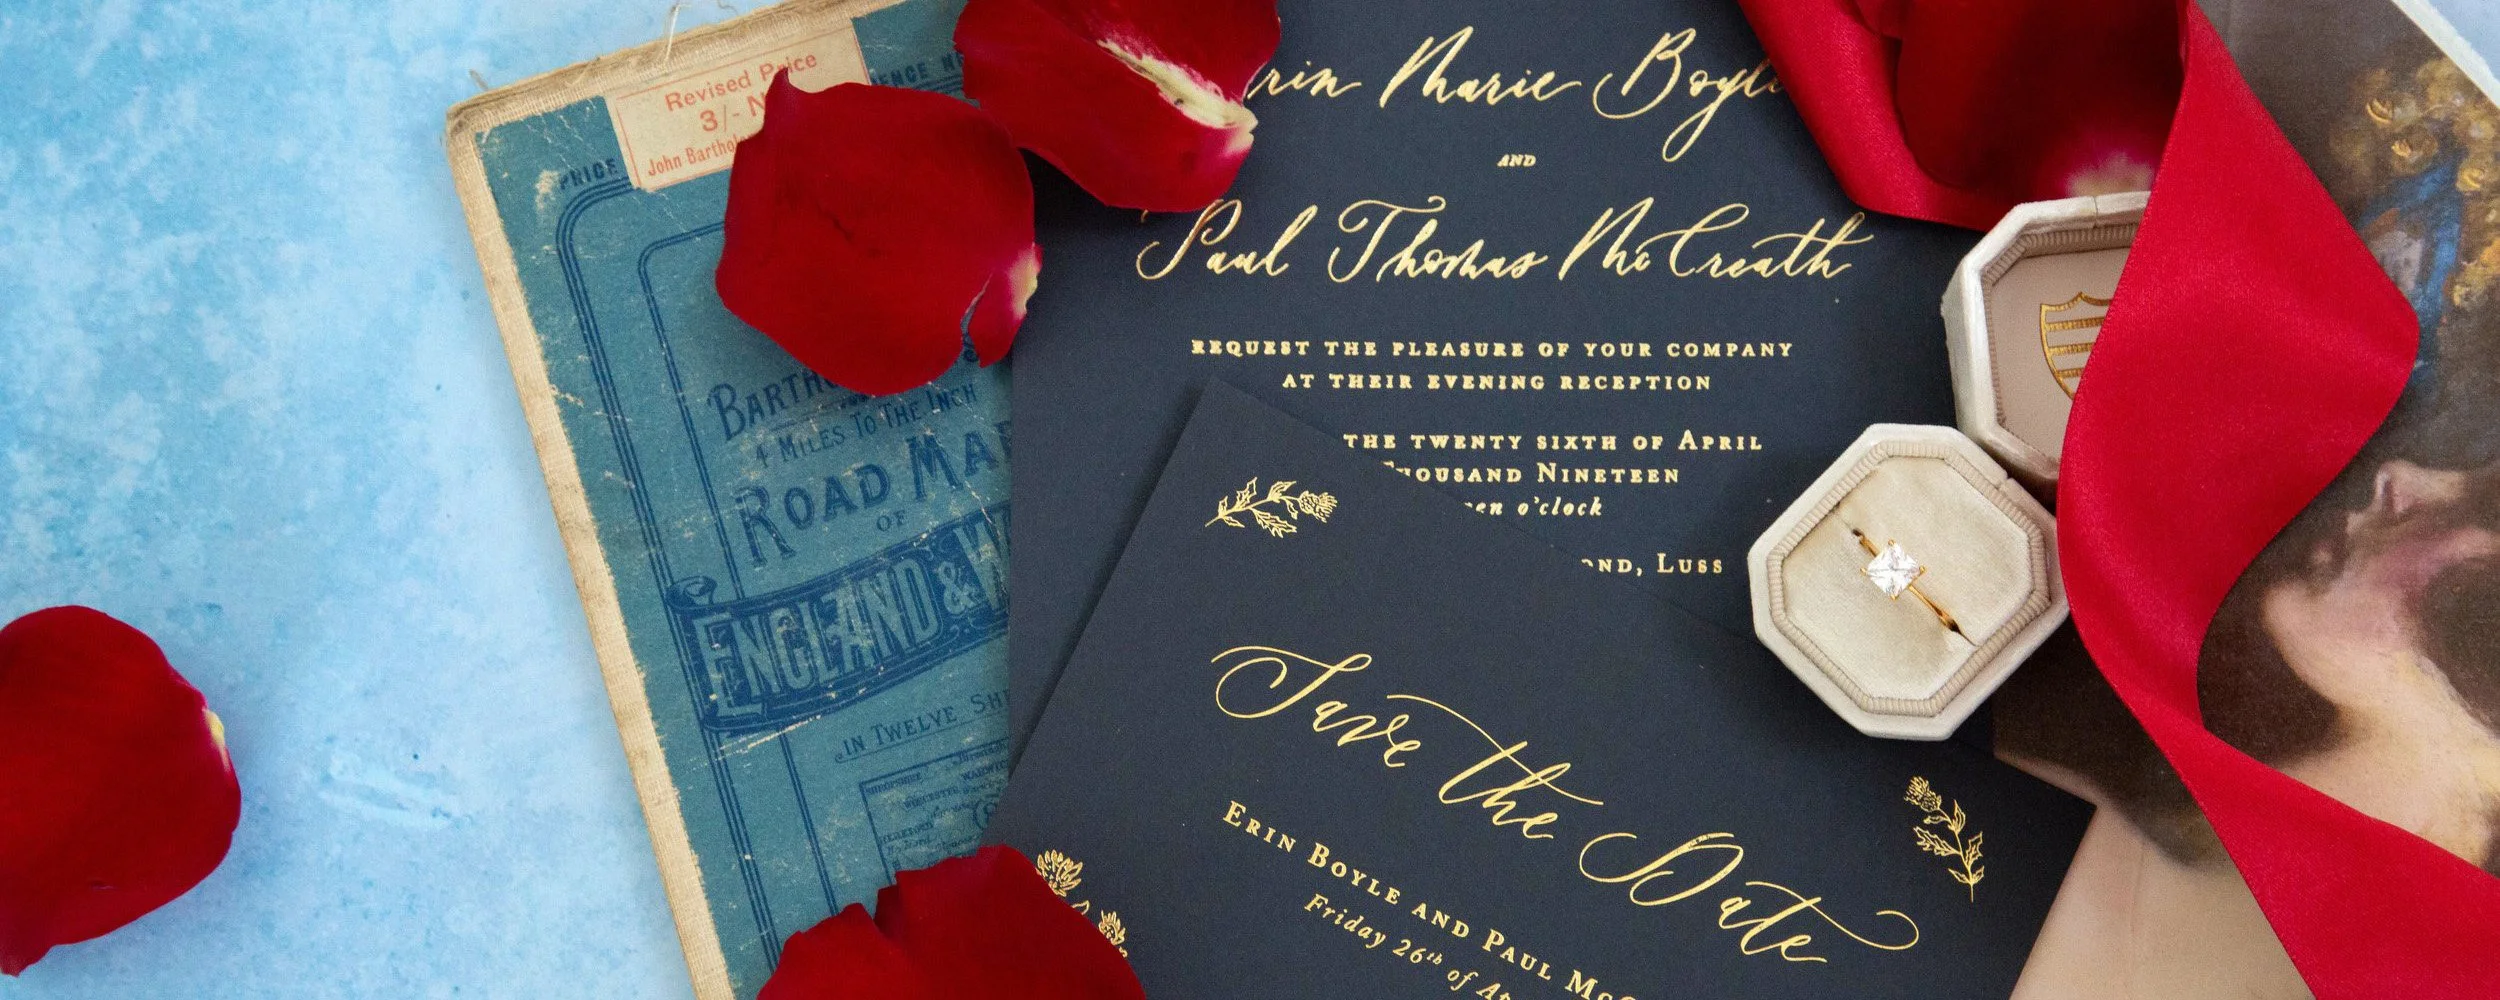 Revised Price
3/-
John
PRICE
4 MILES TO THE INCH
ROAD
OF
ENGLAND &
IN TWELVE
Marie Boyle
AND
Paul Thomas McCreath
REQUEST THE PLEASURE OF YOUR COMPANY
AT THEIR EVENING RECEPTION
THE TWENTY SIXTH OF APRIL
NINETEEN
o'clock
LUSS
Save the Date
ERIN BOYLE AND PAUL
Friday 26th of